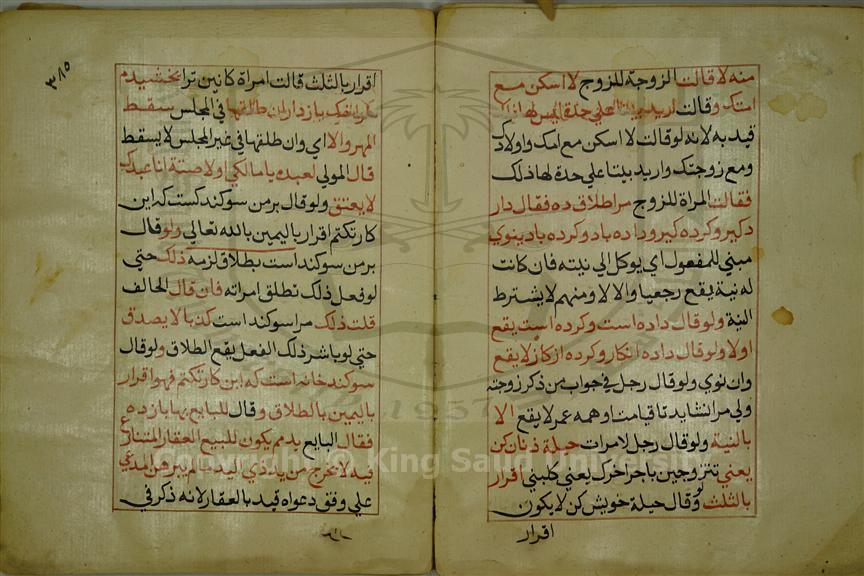 منه لا قالت الزوجة للزوج لا اسكن مع
امتك وقالت اريد بيتا علي حدة ليس لها
قيد به لانه لو قالت لا اسكن مع امك واولادك
ومع زوجتك واريد بيتا علي حدة لها ذلك
فقالت المراة للزوج مرا طلاق ده فقال دار
دكير وكرده كير وداده باد وكرده باد ينوي
مبني للمفعول اي يوكل الي نيته فان كانت
له نية يقع رجعيا والا لا ومنهم لا يشترط
النية ولو قال داده است وكرده است يقع
اولا ولو قال داده انكار وكرده انكار لا يقع
وان نوي ولو قال رجل في جواب من ذكر زوجته
ولي مرا نشايد تا قيامت وهمه عمر لا يقع الا
بالنية ولو قال رجل لامرات حيلة زنان كن
يعني تتزوجين باخر اخرك يعني كلبني اقرار
بالثلث وقال حيلة خويش كن لا يكون
اقرار
٣٨٥
اقرار بالثلث قالت امراة كابين ترا بخشيدم
باز دار ان طلقها في المجلس سقط
المهر والا اي وان طلقها في غير المجلس لا يسقط
قال المولي لعبده يا مالكي ولامته انا عبدك
لا يعتق ولو قال بر من سوكند كست كه اين
كار نكنم اقرار باليمين بالله تعالي ولو قال
بر من سوكند است بطلاق لزمه ذلك حتي
لو فعل ذلك تطلق امراته فان قال الحالف
قلت ذلك مرا سوكند است كذبا لا يصدق
حتي لو باشر ذلك الفعل يقع الطلاق ولو قال
سوكند خانه است كه اين كار نكنم فهو اقرار
باليمين بالطلاق وقال للبايع بها باز ده
فقال البايع بدهم يكون للبيع العقار المتنازع
فيه لا يخرج من يد ذي اليد ما لم يبرهن المدعي
علي وفق دعواه قيد بالعقار لانه ذكر في